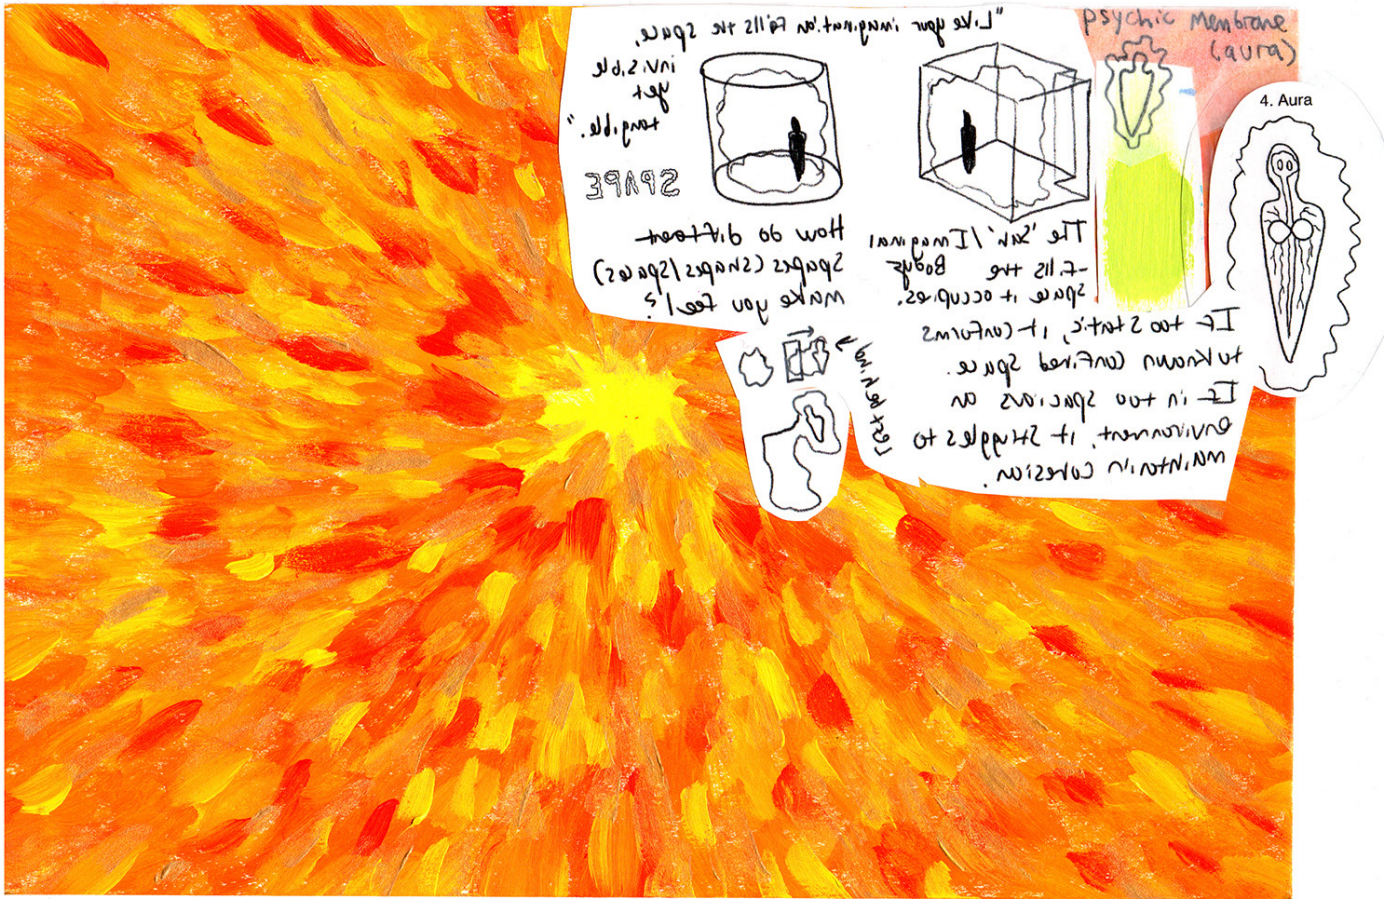 "Like your imagination fills the space,
invisible
yet
tangible."
SPAPE
psychic Membrane
(aura)
4. Aura
How do different
spapes (shapes/spaces)
make you feel?
The 'Sun'/Imaginal
Body
-fills the
space it occupies.
If too static, it conforms
to known confined space.
If in too spacious an
environment, it struggles to
maintain cohesion.
left behind